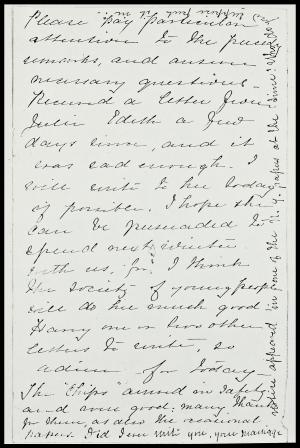 Please pay particular
attention to the
remarks, and answer
necessary questions.
Received a letter from
Julia Edith a few
days since, and it
was sad enough. I
will write to her today
if possible. I hope she
can be persuaded to
spend next winter
with us, for I think
the society of young people
will do her much good
Having one or two other
letters to write, so
adieu for today.
The "Chips" arrived in safety
and were good; many thanks
for them, as also the occasional
papers. Did I ever write you, your marriage
notice appeared in one of the N. Y. papers at the time?